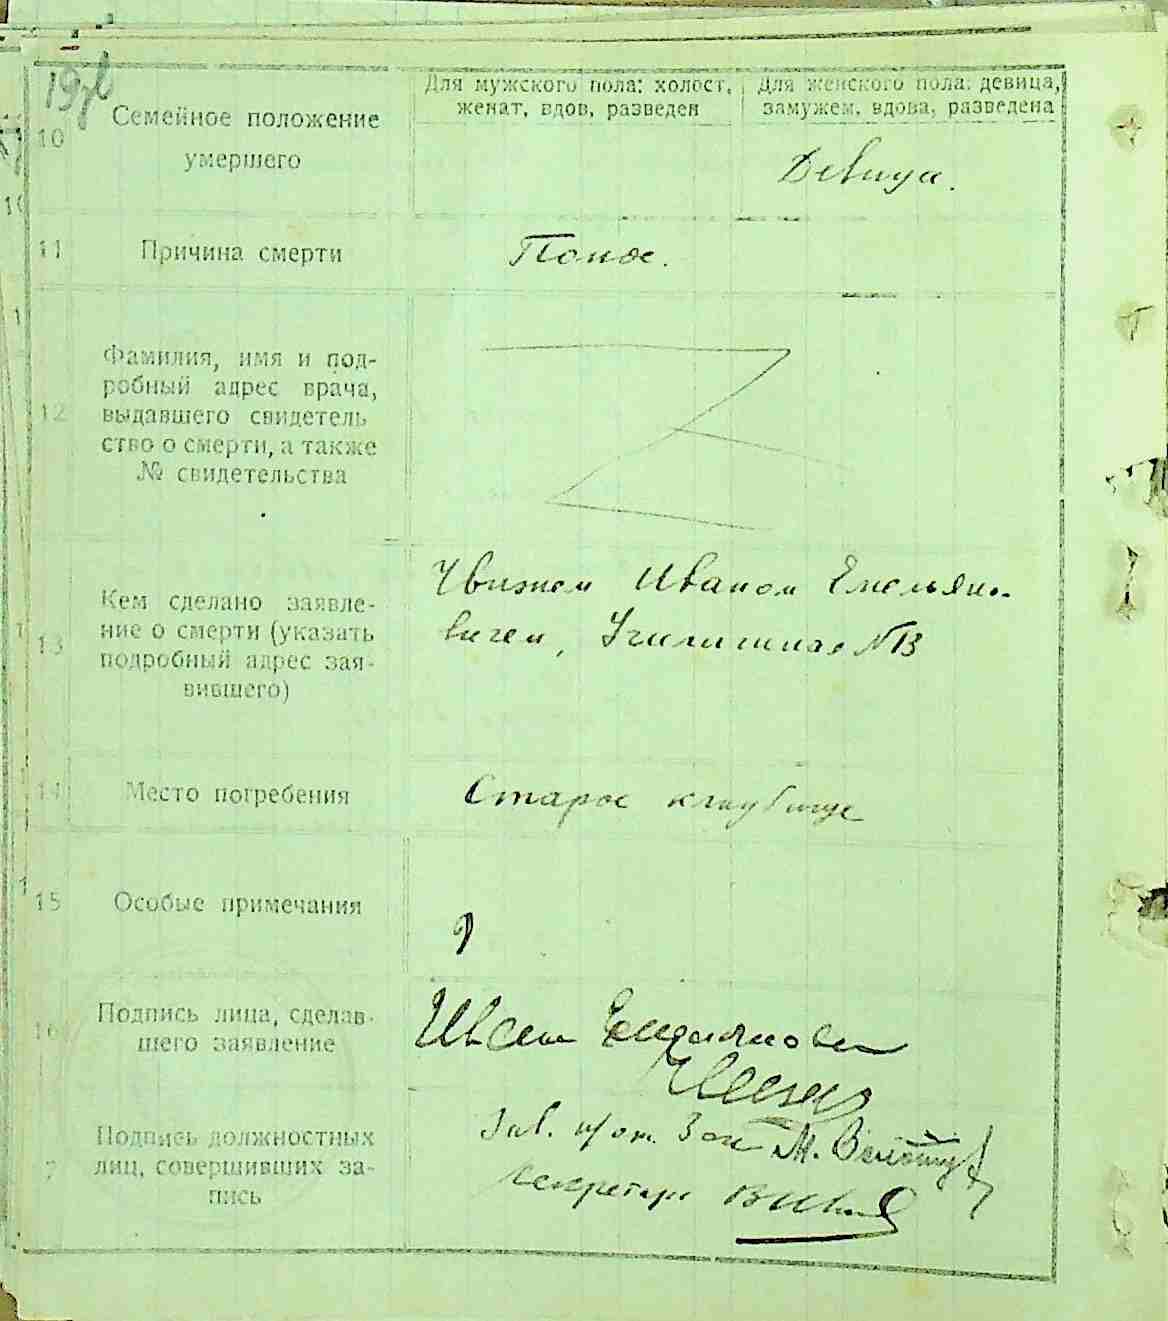 Для мужского пола: холост,
женат, вдов, разведен
Для женского пола: девица,
замужем, вдова, разведена
10
Семейное положение
умершего
Девица.
11
Причина смерти
Понос.
12
Фамилия, имя и под-
робный адрес врача,
выдавшего свидетель
ство о смерти, а также
№ свидетельства
13
Кем сделано заявле-
ние о смерти (указать
подробный адрес зая-
вившего)
Иваном Емельяно-
вичем, Училищная N13
14
Место погребения
Старое кладбище
15
Особые примечания
16
Подпись лица, сделав-
шего заявление
Иван Емельянович
7
Подпись должностных
лиц, совершивших за-
пись
Зав. п/от. Заг М.
Секретарь